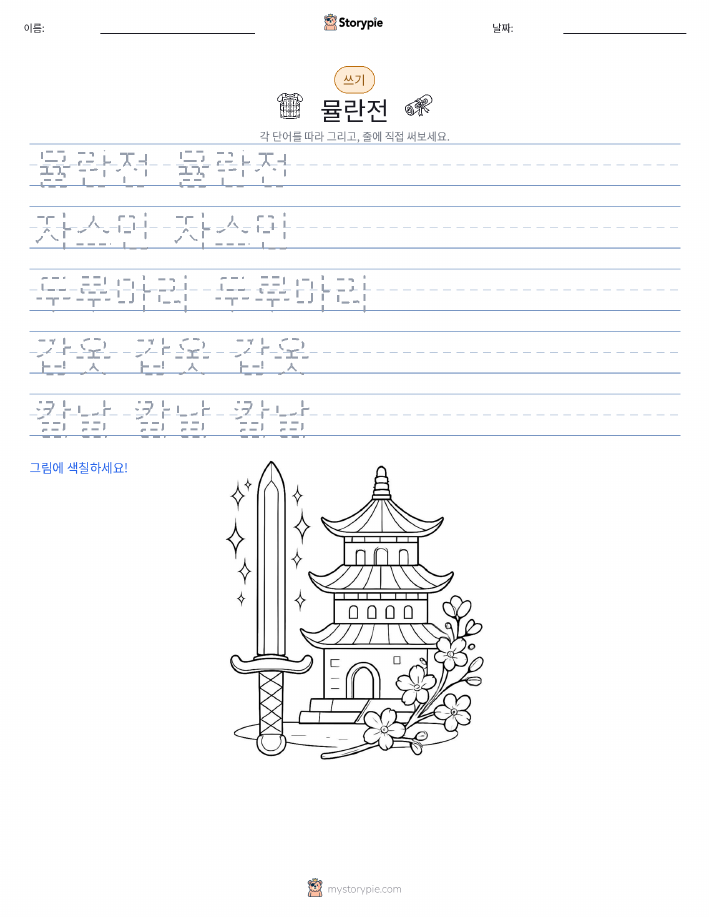 이름:
Storypie
날짜:
쓰기
뮬란전
각 단어를 따라 그리고, 줄에 직접 써보세요.
뮬란전 뮬란전
자스민 자스민
두루마리 두루마리
갑옷 갑옷 갑옷
칼날 칼날 칼날
그림에 색칠하세요!
mystorypie.com